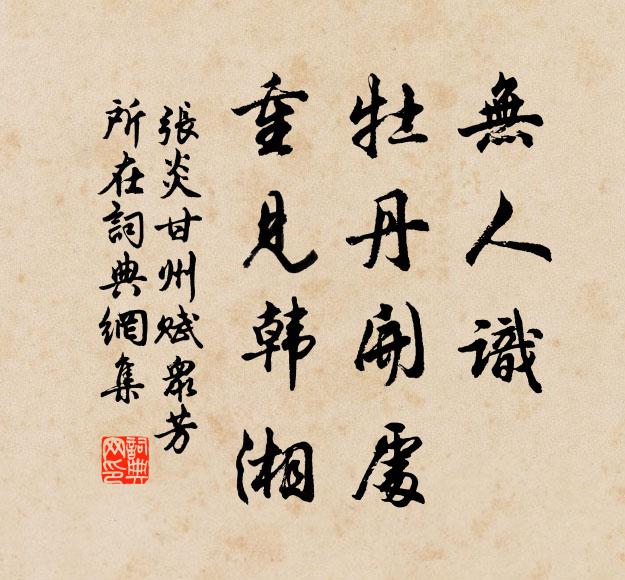 無人識
牡丹開處
重見韩湘
張炎甘州賦衆芳
所在詞典網集
詞典
网印